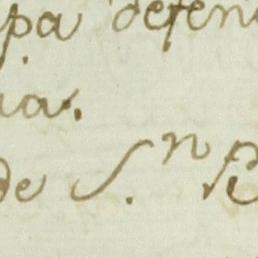 pa defen
ia.
de S.n